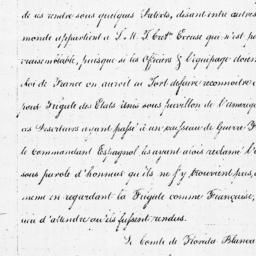 de les rendre sous quelques Pretexts, disant entre autres
monde appartient à S. M. T. Cretne Excuse qui n'est pas
vraisemblable, puisque si les Officiers & l'équipage doiv
Roi de France on auroit eu Tort de faire reconnoitre c
pour Frigate des Etats Unis sous pavillon de l'amerique
ces Deserteurs ayant passé à un vaisseau de Guerre F
le commandant Espagnol les ayant aiois reclamé l'
sous parole d'honneur qu'ils ne s'y trouvient pas,
meme en regardant la Frigate comme Française,
d'attendre qu'ils fussent rendus.
Le Comte de Florida Blanca